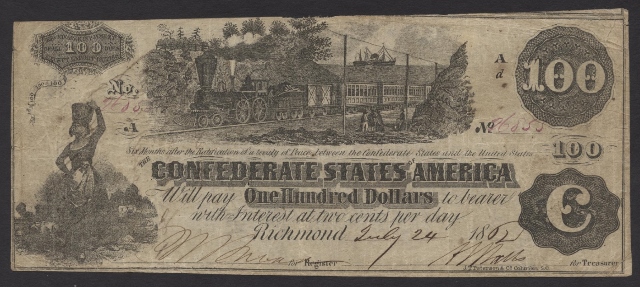 100
A
d
100
No.
A
No
Six Months after the Ratification of a treaty of Peace between the Confederate States and the United States
100
THE
CONFEDERATE STATES OF AMERICA
Will pay One Hundred Dollars to bearer
with Interest at two cents per day
C
Richmond July 24 1862
for Register
for Treasurer